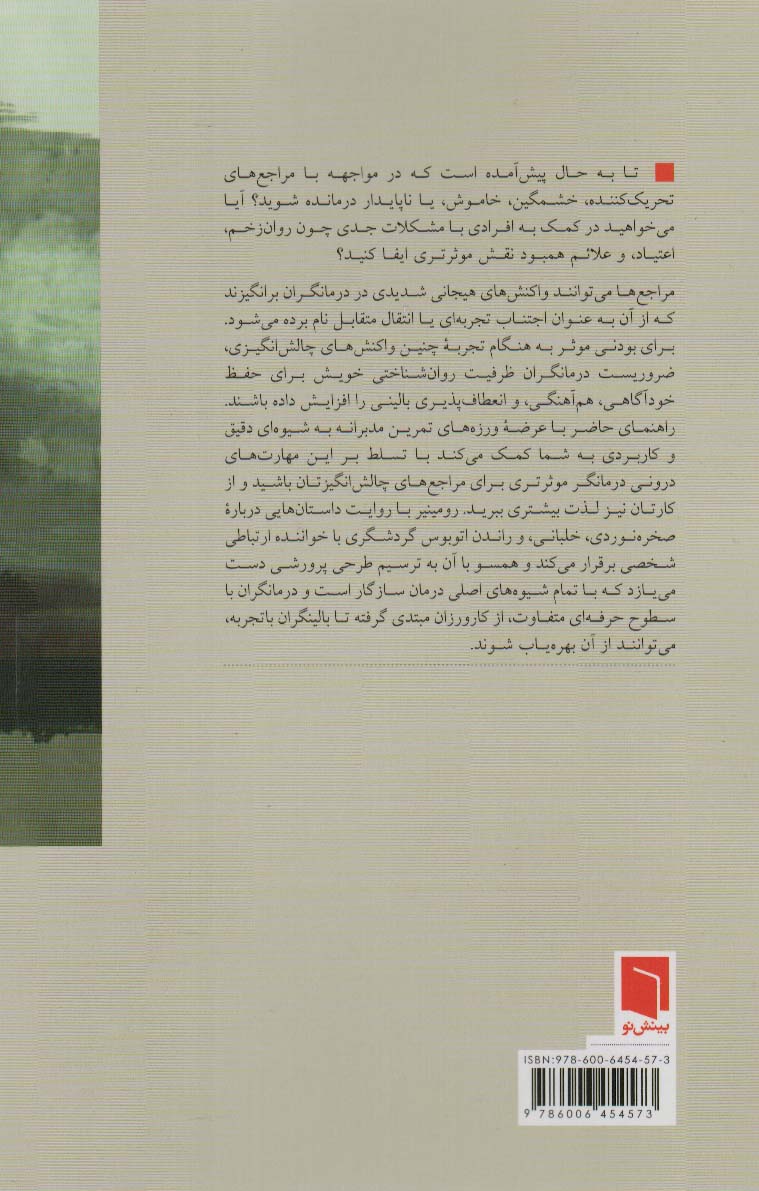 تا به حال پیش‌آمده است که در مواجهه با مراجع‌های
تحریک‌کننده، خشمگین، خاموش، یا ناپایدار درمانده شوید؟ آیا
می‌خواهید در کمک به افرادی با مشکلات جدی چون روان‌زخم،
اعتیاد، و علائم همبود نقش موثرتری ایفا کنید؟
مراجع‌ها می‌توانند واکنش‌های هیجانی شدیدی در درمانگران برانگیزند
که از آن به عنوان اجتناب تجربه‌ای یا انتقال متقابل نام برده می‌شود.
برای بودنی موثر به هنگام تجربهٔ چنین واکنش‌های چالش‌انگیزی،
ضروریست درمانگران ظرفیت روان‌شناختی خویش برای حفظ
خودآگاهی، هم‌آهنگی، و انعطاف‌پذیری بالینی را افزایش داده باشند.
راهنمای حاضر با عرضهٔ ورزه‌های تمرین مدبرانه به شیوه‌ای دقیق
و کاربردی به شما کمک می‌کند با تسلط بر این مهارت‌های
درونی درمانگر موثرتری برای مراجع‌های چالش‌انگیزتان باشید و از
کارتان نیز لذت بیشتری ببرید. رومینیر با روایت داستان‌هایی دربارهٔ
صخره‌نوردی، خلبانی، و راندن اتوبوس گردشگری با خواننده ارتباطی
شخصی برقرار می‌کند و همسو با آن به ترسیم طرحی پرورشی دست
می‌یازد که با تمام شیوه‌های اصلی درمان سازگار است و درمانگران با
سطوح حرفه‌ای متفاوت، از کارورزان مبتدی گرفته تا بالینگران باتجربه،
می‌توانند از آن بهره‌یاب شوند.
بینش‌نو
ISBN:978-600-6454-57-3
9 786006 454573